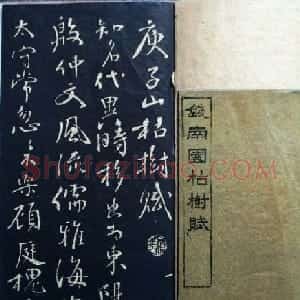 錢南園枯樹賦
庾子山枯樹賦
知名代異時移出為東陽
殷仲文風流儒雅海
太守常忽々不樂顧庭槐